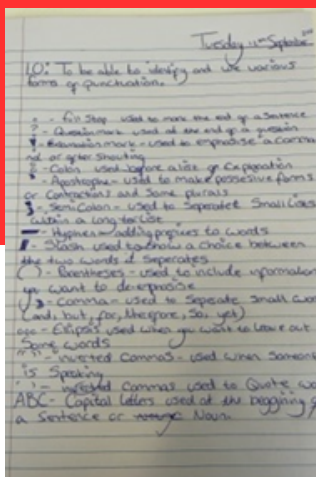 Tuesday 12th September
LO: To be able to identify and use various
forms of punctuation.
. - full Stop used to mark the end of a sentence
? - Question mark used at the end of a question
! - Exclamation mark - used to emphasise a comma
nd or after shouting
: - Colon used before a list or Explanation
' - Apostrophe - used to make possesive forms
or Contractions and Some plurals
; - SemiColon - used to Seperatet Small lists
within a longer list
- - Hyphen - adding prefixes to words
/ - Slash used to show a choice between
the two words it Seperates
( ) - Parentheses - used to include information
you want to de-emphasise
, - Comma - used to Seperate Small wor
(and, but, for, therefore, So, yet)
ooo - Elipsis used when you want to leave out
Some words
" " - inverted Commas - used when Someon
is Speaking
' ' - inverted Commas used to Quote wo
ABC - Capital letters used at the beggining of
a Sentence or Noun.